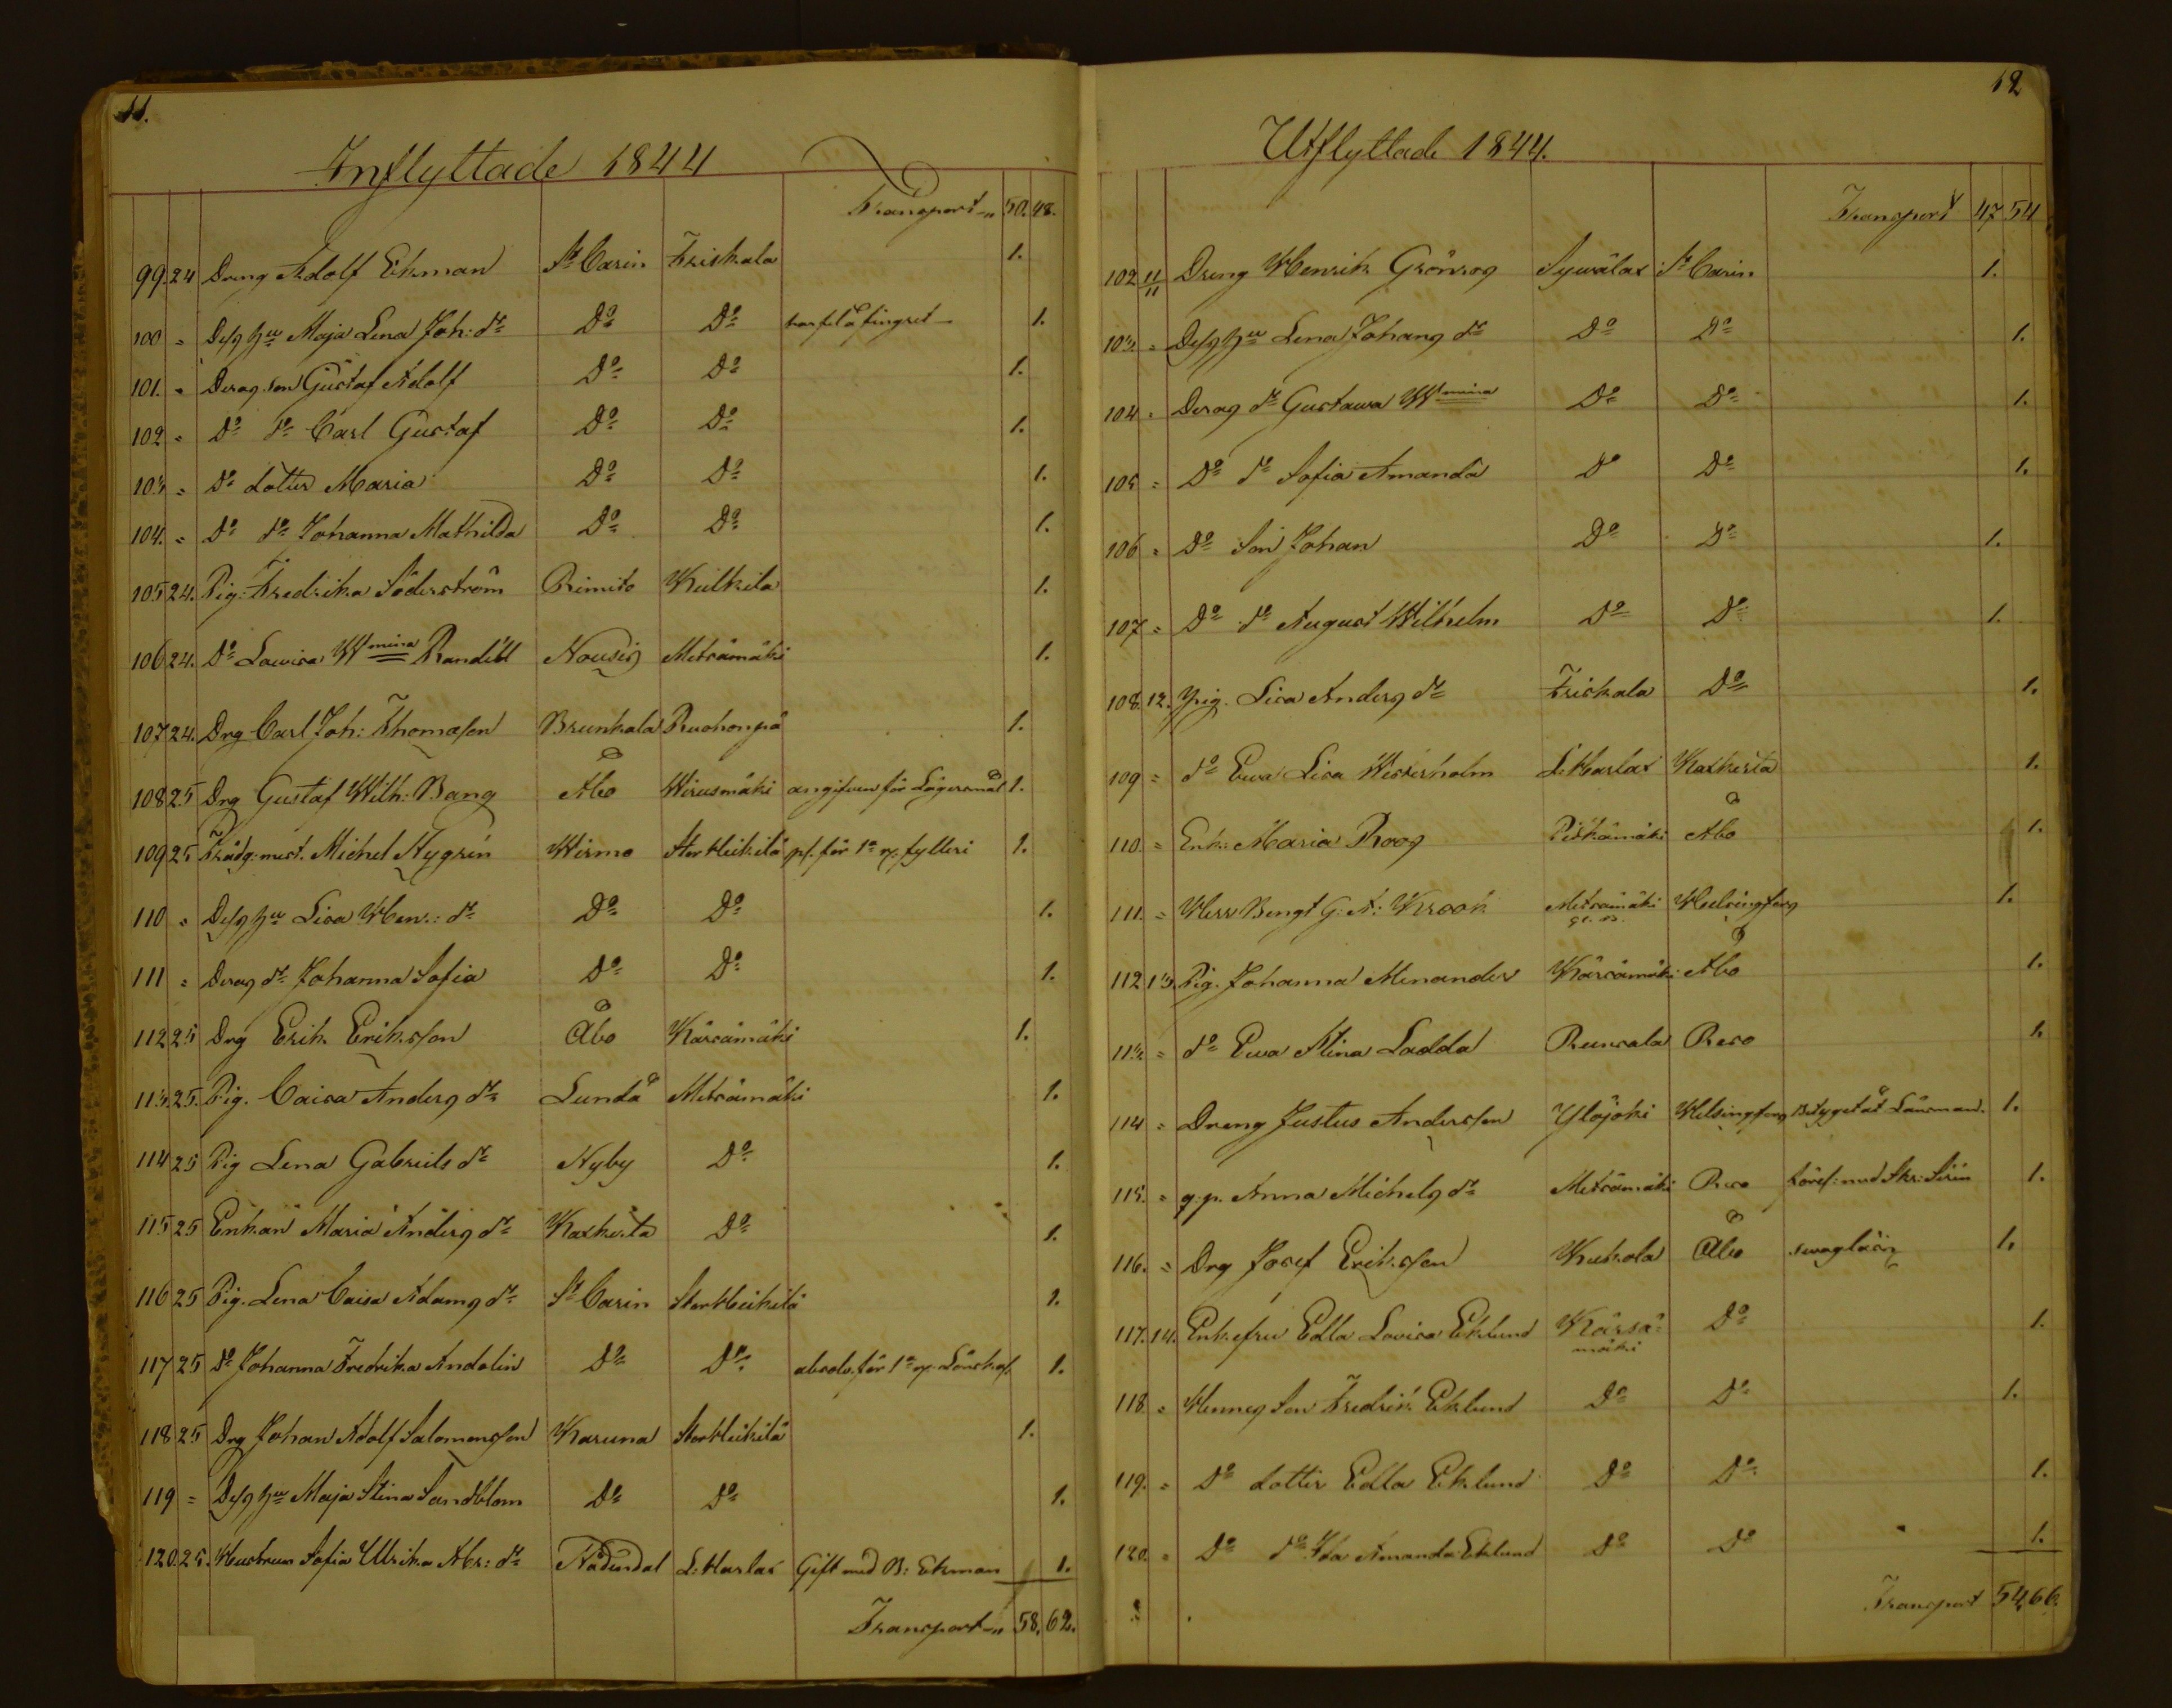 11.
Inflyttade 1844
Transport 50. 48.
99. 24 Dreng Adolf Ekman St Carin Friskala 1.
100 = Dess hu Maja Lena Joh: dr Do Do 1.
101. = Deras son Gustaf Adolf Do Do 1.
102 = Do do Carl Gustaf Do Do 1.
103 = Do dotter Maria Do Do 1.
104. = Do do Johanna Mathilda Do Do 1.
105 24. Pig. Fredrika Söderström Rimito 1.
106 24. Do Lovisa Wmina Randell Nousis Metsämäki 1.
107 24. Drg Carl Joh: Thomasson Brunkala Ruohonpä 1.
108 25 Drg Gustaf Wilh: Bang Åbo Wirusmäki angifven för Lägersmål 1.
109 25 Trädg: mest. Michel Nygrén Wirmo Storheikilä pl. för 1a g. fylleri 1.
110 = Dess hu Lisa Hen: dr Do Do 1.
111 = Deras dr Johanna Sofia Do Do 1.
112 25 Drg Erik Eriksson Åbo Kärsämäki 1.
113. 25. Pig. Caisa Anders dr Lundå Metsämäki 1.
114 25 Pig Lena Gabriels dr Nyby Do 1.
115 25 Enkan Maria Anders dr Kaskista Do 1.
116 25 Pig. Lena Caisa Adams dr St Carin Storheikilä 1.
117 25 Do Johanna Fredrika Andelin Do Do absolv. för 1a g. Lönsk. 1.
118 25 Drg Johan Adolf Salomonsson Karuna Storheikilä 1.
119 = Dess hu Maja Stina Sandblom Do Do 1.
120. 25. Hustrun Sofia Ulrika Abr: dr Nådendal L: Harlax Gift med B: Ekman 1.
Transport 58. 62.
12
Utflyttade 1844.
Transport 47 54
102 11/11 Dreng Henrik Grönroos S:t Carin 1.
103. = Dess hu Lena Johans dr Do Do 1.
104 = Deras dr Gustawa Wmina Do Do 1.
105 = Do dr Sofia Amanda Do Do 1.
106 = Do Son Johan Do Do 1.
107 = Do do August Wilhelm Do Do 1.
108. 12. Pig. Lisa Anders dr Friskala Do 1.
109 = do Ewa Lisa Westerholm L: Harlax Kaskista 1.
110. = Enk: Maria Roos Pitkämäki Åbo 1.
111. = Herr Bengt G: A: Krook Metsämäki Helsingfors 1.
112 13. Pig. Johanna Menander Kärsämäki Åbo 1.
113. = do Ewa Stina Ladda Runsala Reso 1.
114 = Dreng Justus Andersson Yläjoki Helsingfors Betyget åt Länsman. 1.
115. = g. p. Anna Michels dr Metsämäki Reso 1.
116. = Drg Josef Eriksson Kukola Åbo 1.
117. 14. Enkefru Edla Lovisa Eklund Kärsä-
mäki Do 1.
118. = Hennes Son Fredrik Eklund Do Do 1.
119. = Do dotter Edla Eklund Do Do 1.
120. = Do do Ida Amanda Eklund Do Do 1.
Transport 54. 66.